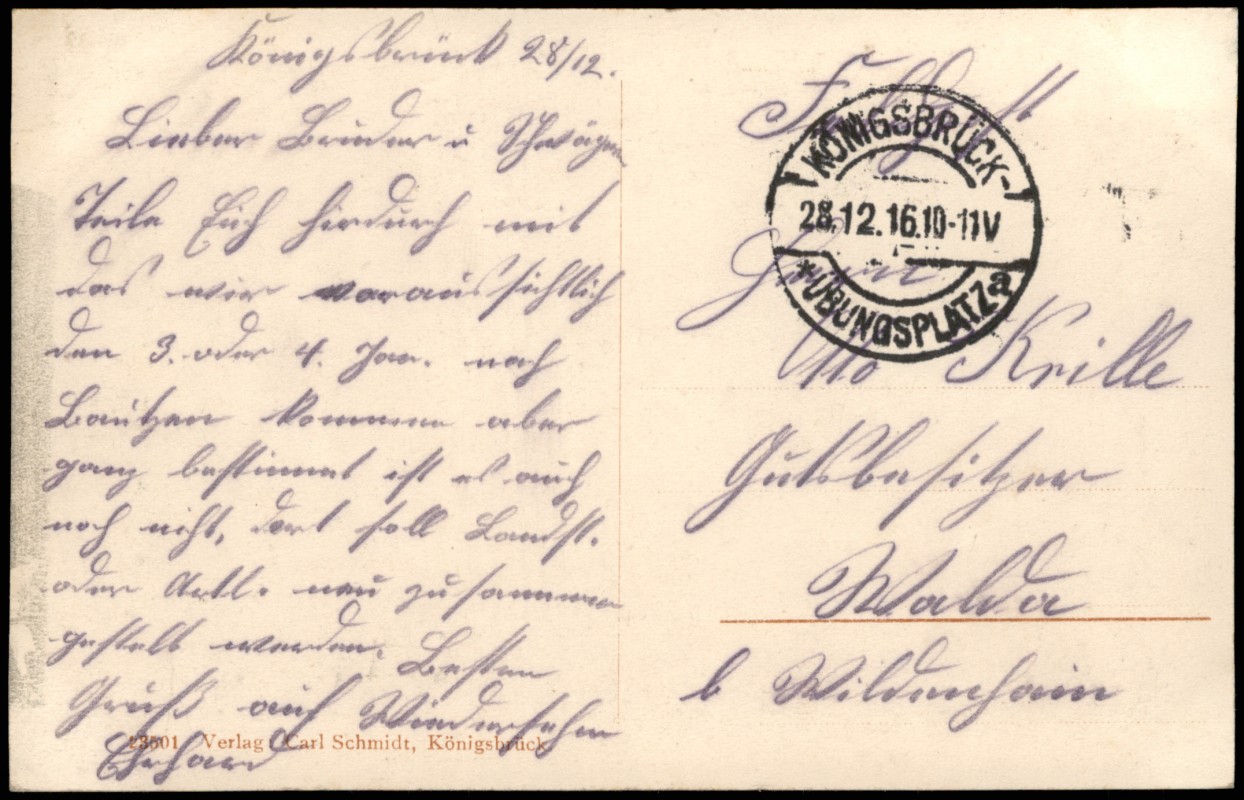 Königsbrück 28/12.
Lieber Bruder u Schwägerin
Teile Euch hirdurch mit
das wir voraussichtlich
den 3. oder 4. Jan. nach
Bautzen kommen aber
ganz bestimmt ist es auch
noch nicht, dort soll Landst.
oder Artl. neu zusammen
gestelt werden. Besten
Gruß auf Wiedersehn
Erhard
23501 Verlag Carl Schmidt, Königsbrück
Feldpost
KÖNIGSBRÜCK-
28.12.16.10-11V
* ÜBUNGSPLATZ a
Herrn
Otto Krille
Gutsbesitzer
Walda
b Wildenhain